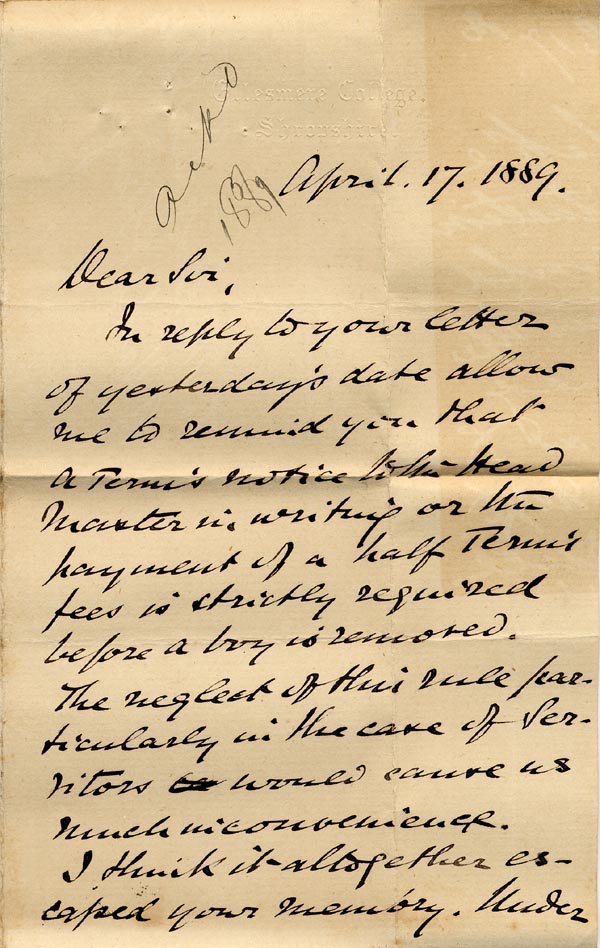 Ellesmere College,
Shropshire.
ackd
18/4/89
April. 17. 1889.
Dear Sir,
In reply to your letter
of yesterday's date allow
me to remind you that
a Term's notice to the Head
Master in writing or the
payment of a half Term's
fees is strictly required
before a boy is removed.
The neglect of this rule par-
ticularly in the case of Ser-
vitors would cause us
much inconvenience.
I think it altogether es-
caped your memory. Under